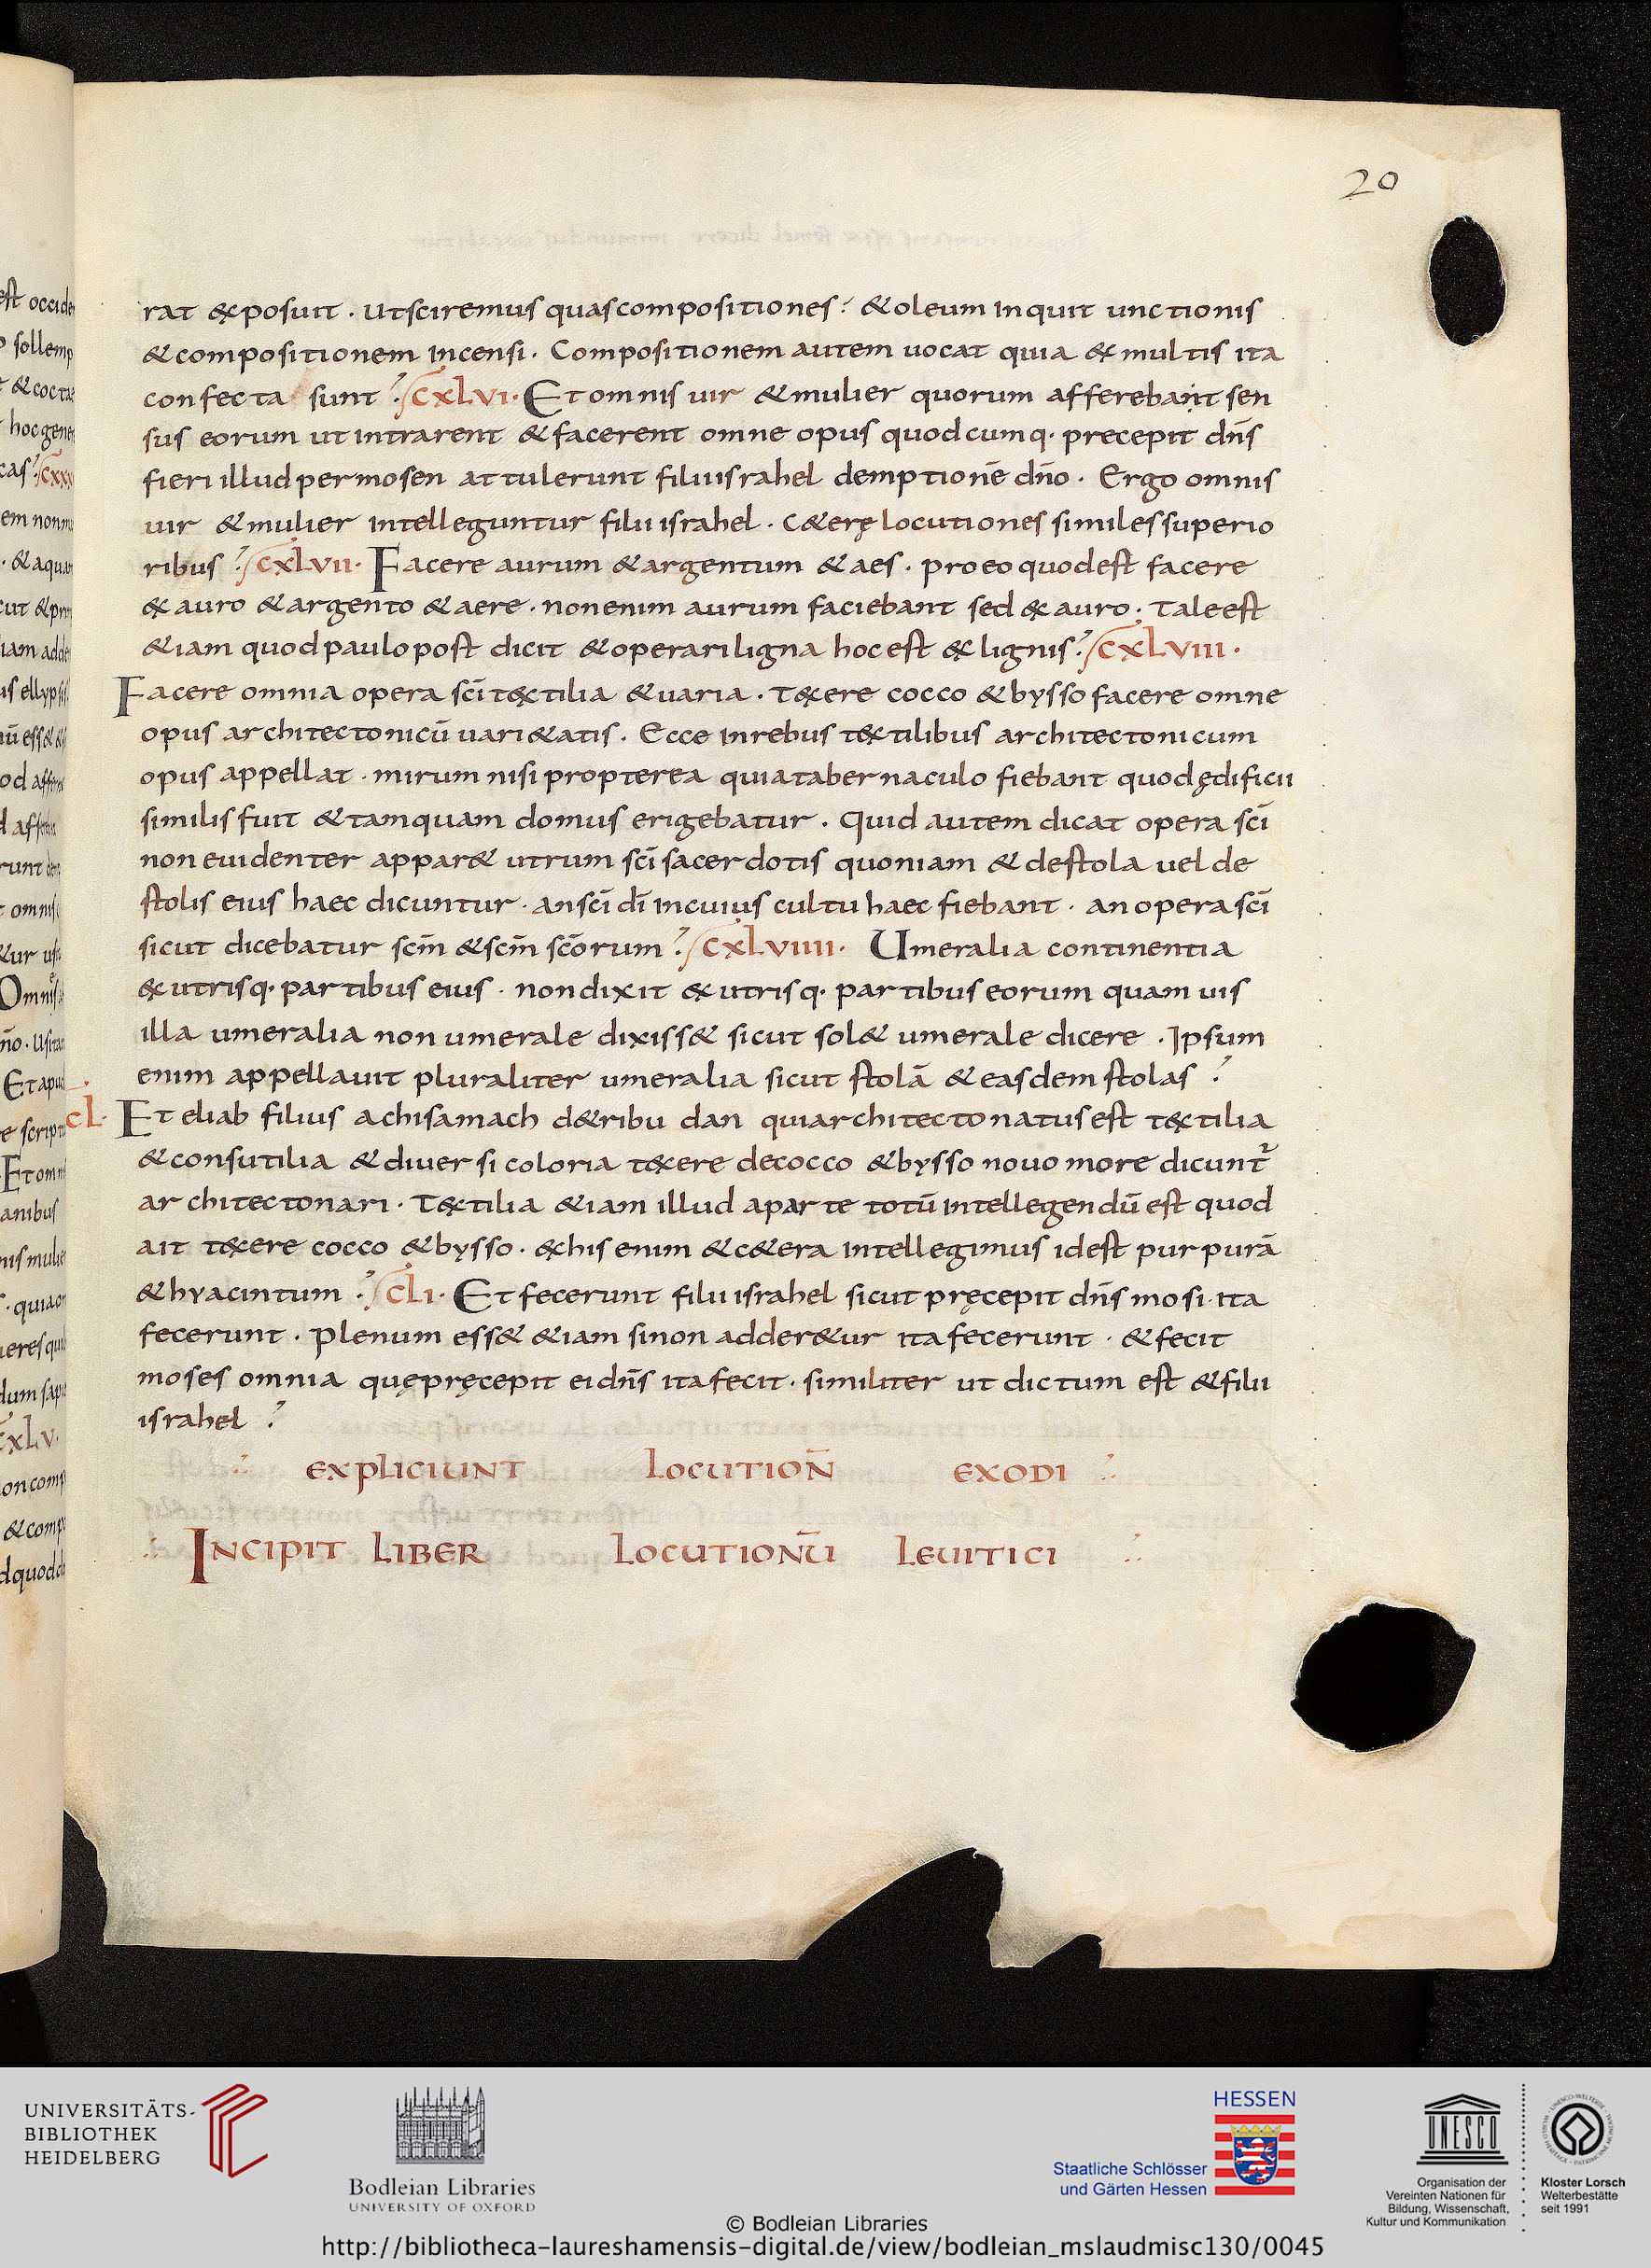 20
rat &xposuit . utsciremus quascompositiones? &oleum inquit unctionis
&compositionem incensi. Compositionem autem uocat quia &multis ita
confecta sunt? CXLVI. Et omnis uir &mulier quorum afferebaint sen
sus eorum ut intrarent &facerent omne opus quodcumq. precepit dn̄s
fieri illud permosen attulerunt filiiisrahel demptionē dn̄o. Ergo omnis
uir &mulier intelleguntur filii israhel. c&erę locutiones similes superio
ribus? CXLVII. Facere aurum &argentum &aes. pro eo quodest facere
&x auro &argento &aere. nonenim aurum faciebant sed &x auro. Tale est
&iam quod paulo post dicit &operari ligna hoc est &x lignis? CXLVIII.
Facere omnia opera scī t&xtilia &uaria. t&xere cocco &bysso facere omne
opus architectonicū uari&atis. Ecce inrebus t&xtilibus architectonicum
opus appellat. mirum nisi propterea quia tabernaculo fiebant quod ędificii
similis fuit &tamquam domus erigebatur. Quid autem dicat opera scī
non euidenter appar& utrum scī sacerdotis quoniam &destola uel de
stolis eius haec dicuntur. an scī dī incuius cultu haec fiebant. an opera scī
sicut dicebatur scm̄ &scm̄ scōrum? CXLVIIII. Umeralia continentia
&xutrisq. partibus eius. non dixit &xutrisq. partibus eorum quam uis
illa umeralia non umerale dixiss& sicut sol& umerale dicere. Ipsum
enim appellauit pluraliter umeralia sicut stolā &easdem stolas?
CL. Et eliab filius achisamach d&ribu dan qui architectonatus est t&xtilia
&consutilia &diuersi coloria t&xere decocco &bysso nouo more dicunt̄
architectonari. T&xtilia &iam illud aparte totū intellegendū est quod
ait t&xere cocco &bysso. &xhis enim &c&era intellegimus idest purpurā
&hyacintum? CLI. Et fecerunt filii israhel sicut pręcepit dn̄s mosi. ita
fecerunt. plenum ess& &iam si non adder&ur ita fecerunt. &fecit
moses omnia quępręcepit ei dn̄s ita fecit. similiter ut dictum est &filii
israhel?
EXPLICIUNT LOCUTION̄ EXODI
INCIPIT LIBER LOCUTIONŪ LEUITICI
UNIVERSITÄTS-
BIBLIOTHEK
HEIDELBERG
Bodleian Libraries
UNIVERSITY OF OXFORD
HESSEN
Staatliche Schlösser
und Gärten Hessen
UNESCO
Organisation der
Vereinten Nationen für
Bildung, Wissenschaft,
Kultur und Kommunikation
Kloster Lorsch
Welterbestätte
seit 1991
© Bodleian Libraries
http://bibliotheca-laureshamensis-digital.de/view/bodleian_mslaudmisc130/0045